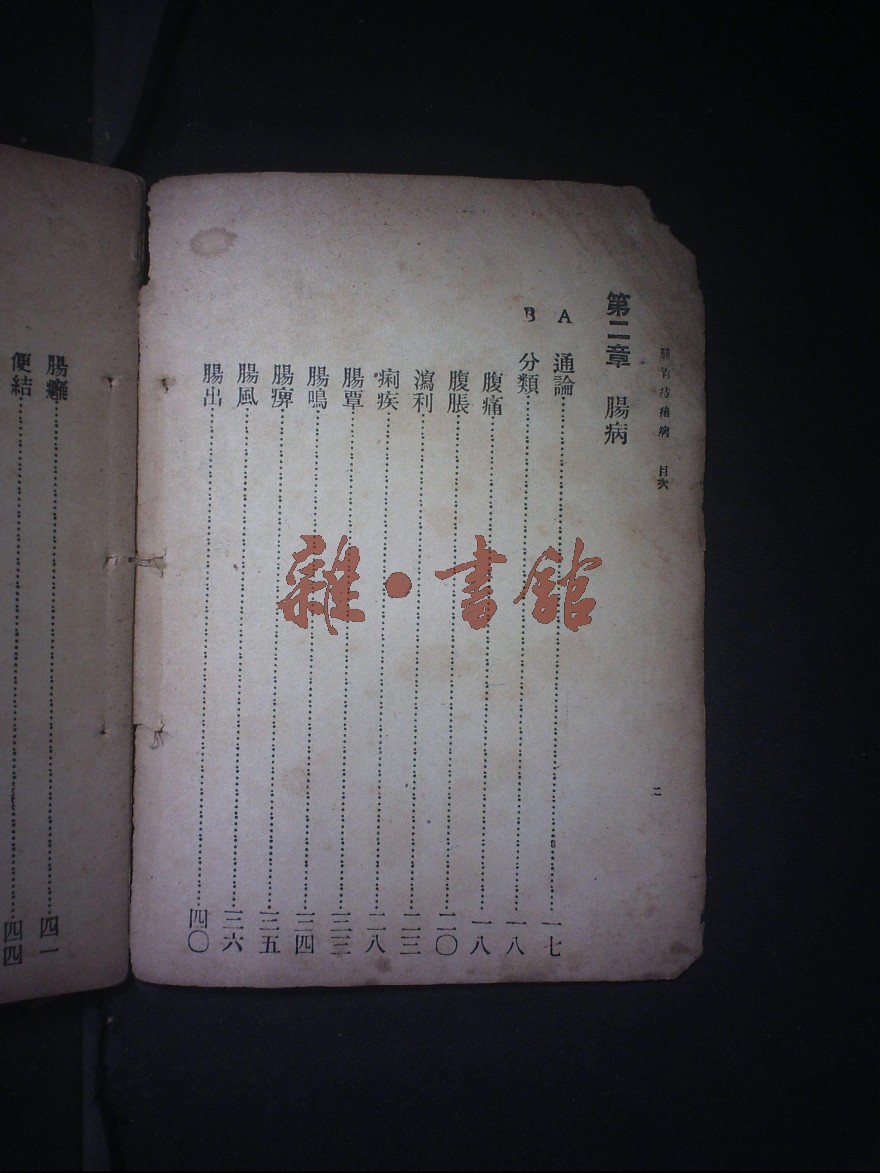 目次
二
第二章 腸病
A 通論 一七
B 分類 一八
腹痛 一八
腹脹 二〇
瀉利 二三
痢疾 二八
腸覃 三三
腸鳴 三四
腸痹 三五
腸風 三六
腸出 四〇
腸癰 四一
便結 四四
雜·書館